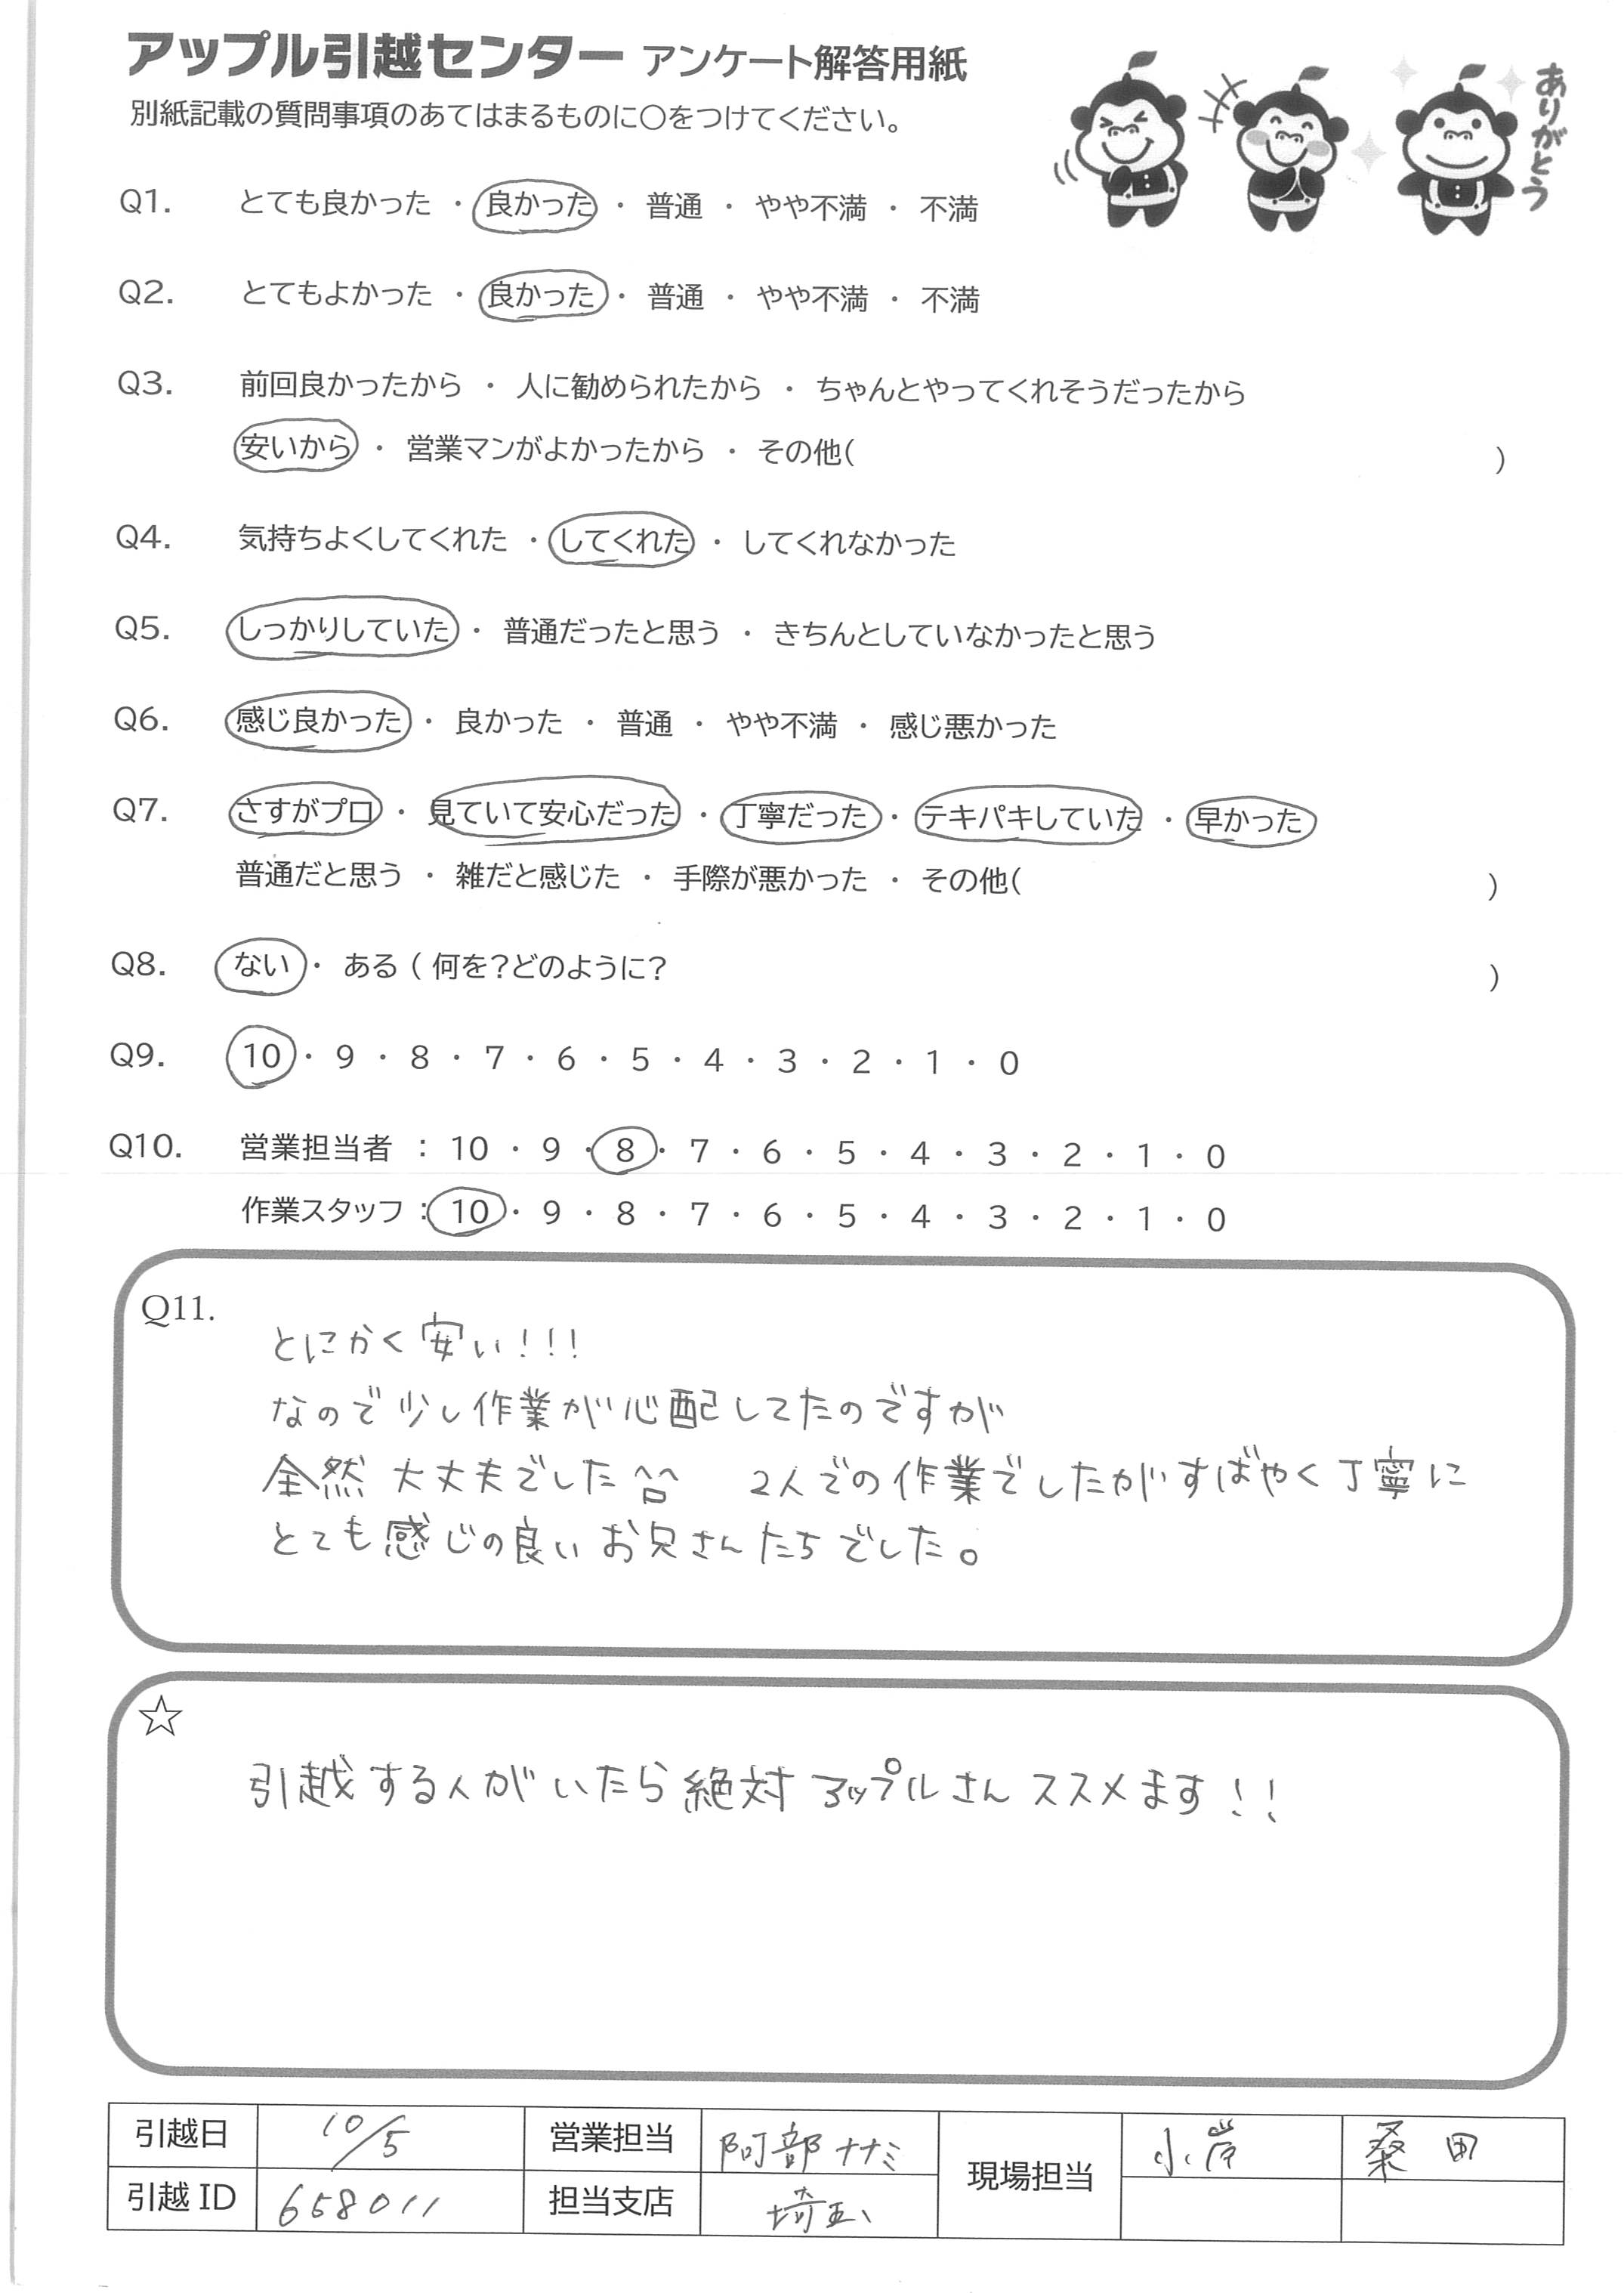 アップル引越センター アンケート解答用紙
別紙記載の質問事項のあてはまるものに〇をつけてください。
ありがとう
Q1. とても良かった ・ 良かった ・ 普通 ・ やや不満 ・ 不満
Q2. とてもよかった ・ 良かった ・ 普通 ・ やや不満 ・ 不満
Q3. 前回良かったから ・ 人に勧められたから ・ ちゃんとやってくれそうだったから
安いから ・ 営業マンがよかったから ・ その他( )
Q4. 気持ちよくしてくれた ・ してくれた ・ してくれなかった
Q5. しっかりしていた ・ 普通だったと思う ・ きちんとしていなかったと思う
Q6. 感じ良かった ・ 良かった ・ 普通 ・ やや不満 ・ 感じ悪かった
Q7. さすがプロ ・ 見ていて安心だった ・ 丁寧だった ・ テキパキしていた ・ 早かった
普通だと思う ・ 雑だと感じた ・ 手際が悪かった ・ その他( )
Q8. ない ・ ある ( 何を?どのように? )
Q9. 10 ・ 9 ・ 8 ・ 7 ・ 6 ・ 5 ・ 4 ・ 3 ・ 2 ・ 1 ・ 0
Q10. 営業担当者 : 10 ・ 9 ・ 8 ・ 7 ・ 6 ・ 5 ・ 4 ・ 3 ・ 2 ・ 1 ・ 0
作業スタッフ : 10 ・ 9 ・ 8 ・ 7 ・ 6 ・ 5 ・ 4 ・ 3 ・ 2 ・ 1 ・ 0
Q11.
とにかく安い!!!
なので少し作業が心配してたのですが
全然大丈夫でした^^ 2人での作業でしたがすばやく丁寧に
とても感じの良いお兄さんたちでした。
☆
引越する人がいたら絶対アップルさんススメます!!
引越日 10/5 営業担当 阿部ナナミ 現場担当 小岸 桑田
引越ID 658011 担当支店 埼玉